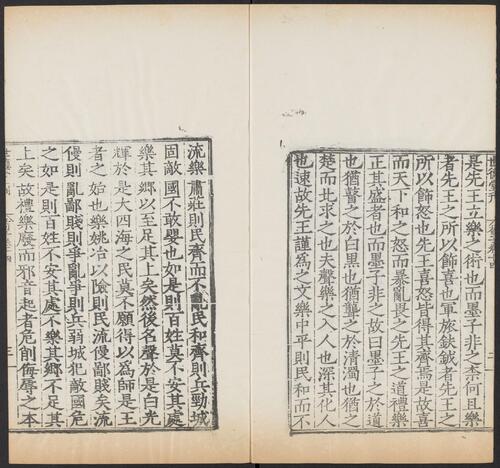 世德堂刊
是先王立樂之術也而墨子非之柰何且樂
者先王之所以飾喜也軍旅鈇鉞者先王之
所以飾怒也先王喜怒皆得其齊焉是故喜
而天下和之怒而暴亂畏之先王之道禮樂
正其盛者也而墨子非之故曰墨子之於道
也猶瞽之於白黑也猶聾之於清濁也猶之
楚而北求之也夫聲樂之入人也深其化人
也速故先王謹爲之文樂中平則民和而不
流樂肅莊則民齊而不亂民和齊則兵勁城
固敵國不敢嬰也如是則百姓莫不安其處
樂其鄉以至足其上矣然後名聲於是白光
輝於是大四海之民莫不願得以爲師是王
者之始也樂姚冶以險則民流僈鄙賤矣流
僈則亂鄙賤則爭亂爭則兵弱城犯敵國危
之如是則百姓不安其處不樂其鄉不足其
上矣故禮樂廢而邪音起者危削侮辱之本
三